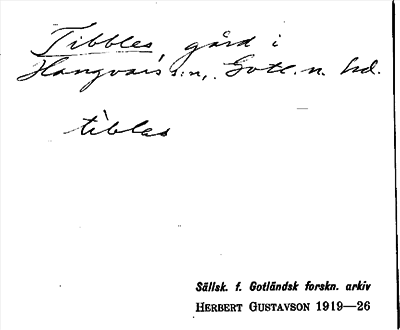 Tibbles, gård i
Hangvars s:n, Gotl. n. hd.
tìbləs
Sällsk. f. Gotländsk forskn. arkiv
HERBERT GUSTAVSON 1919—26